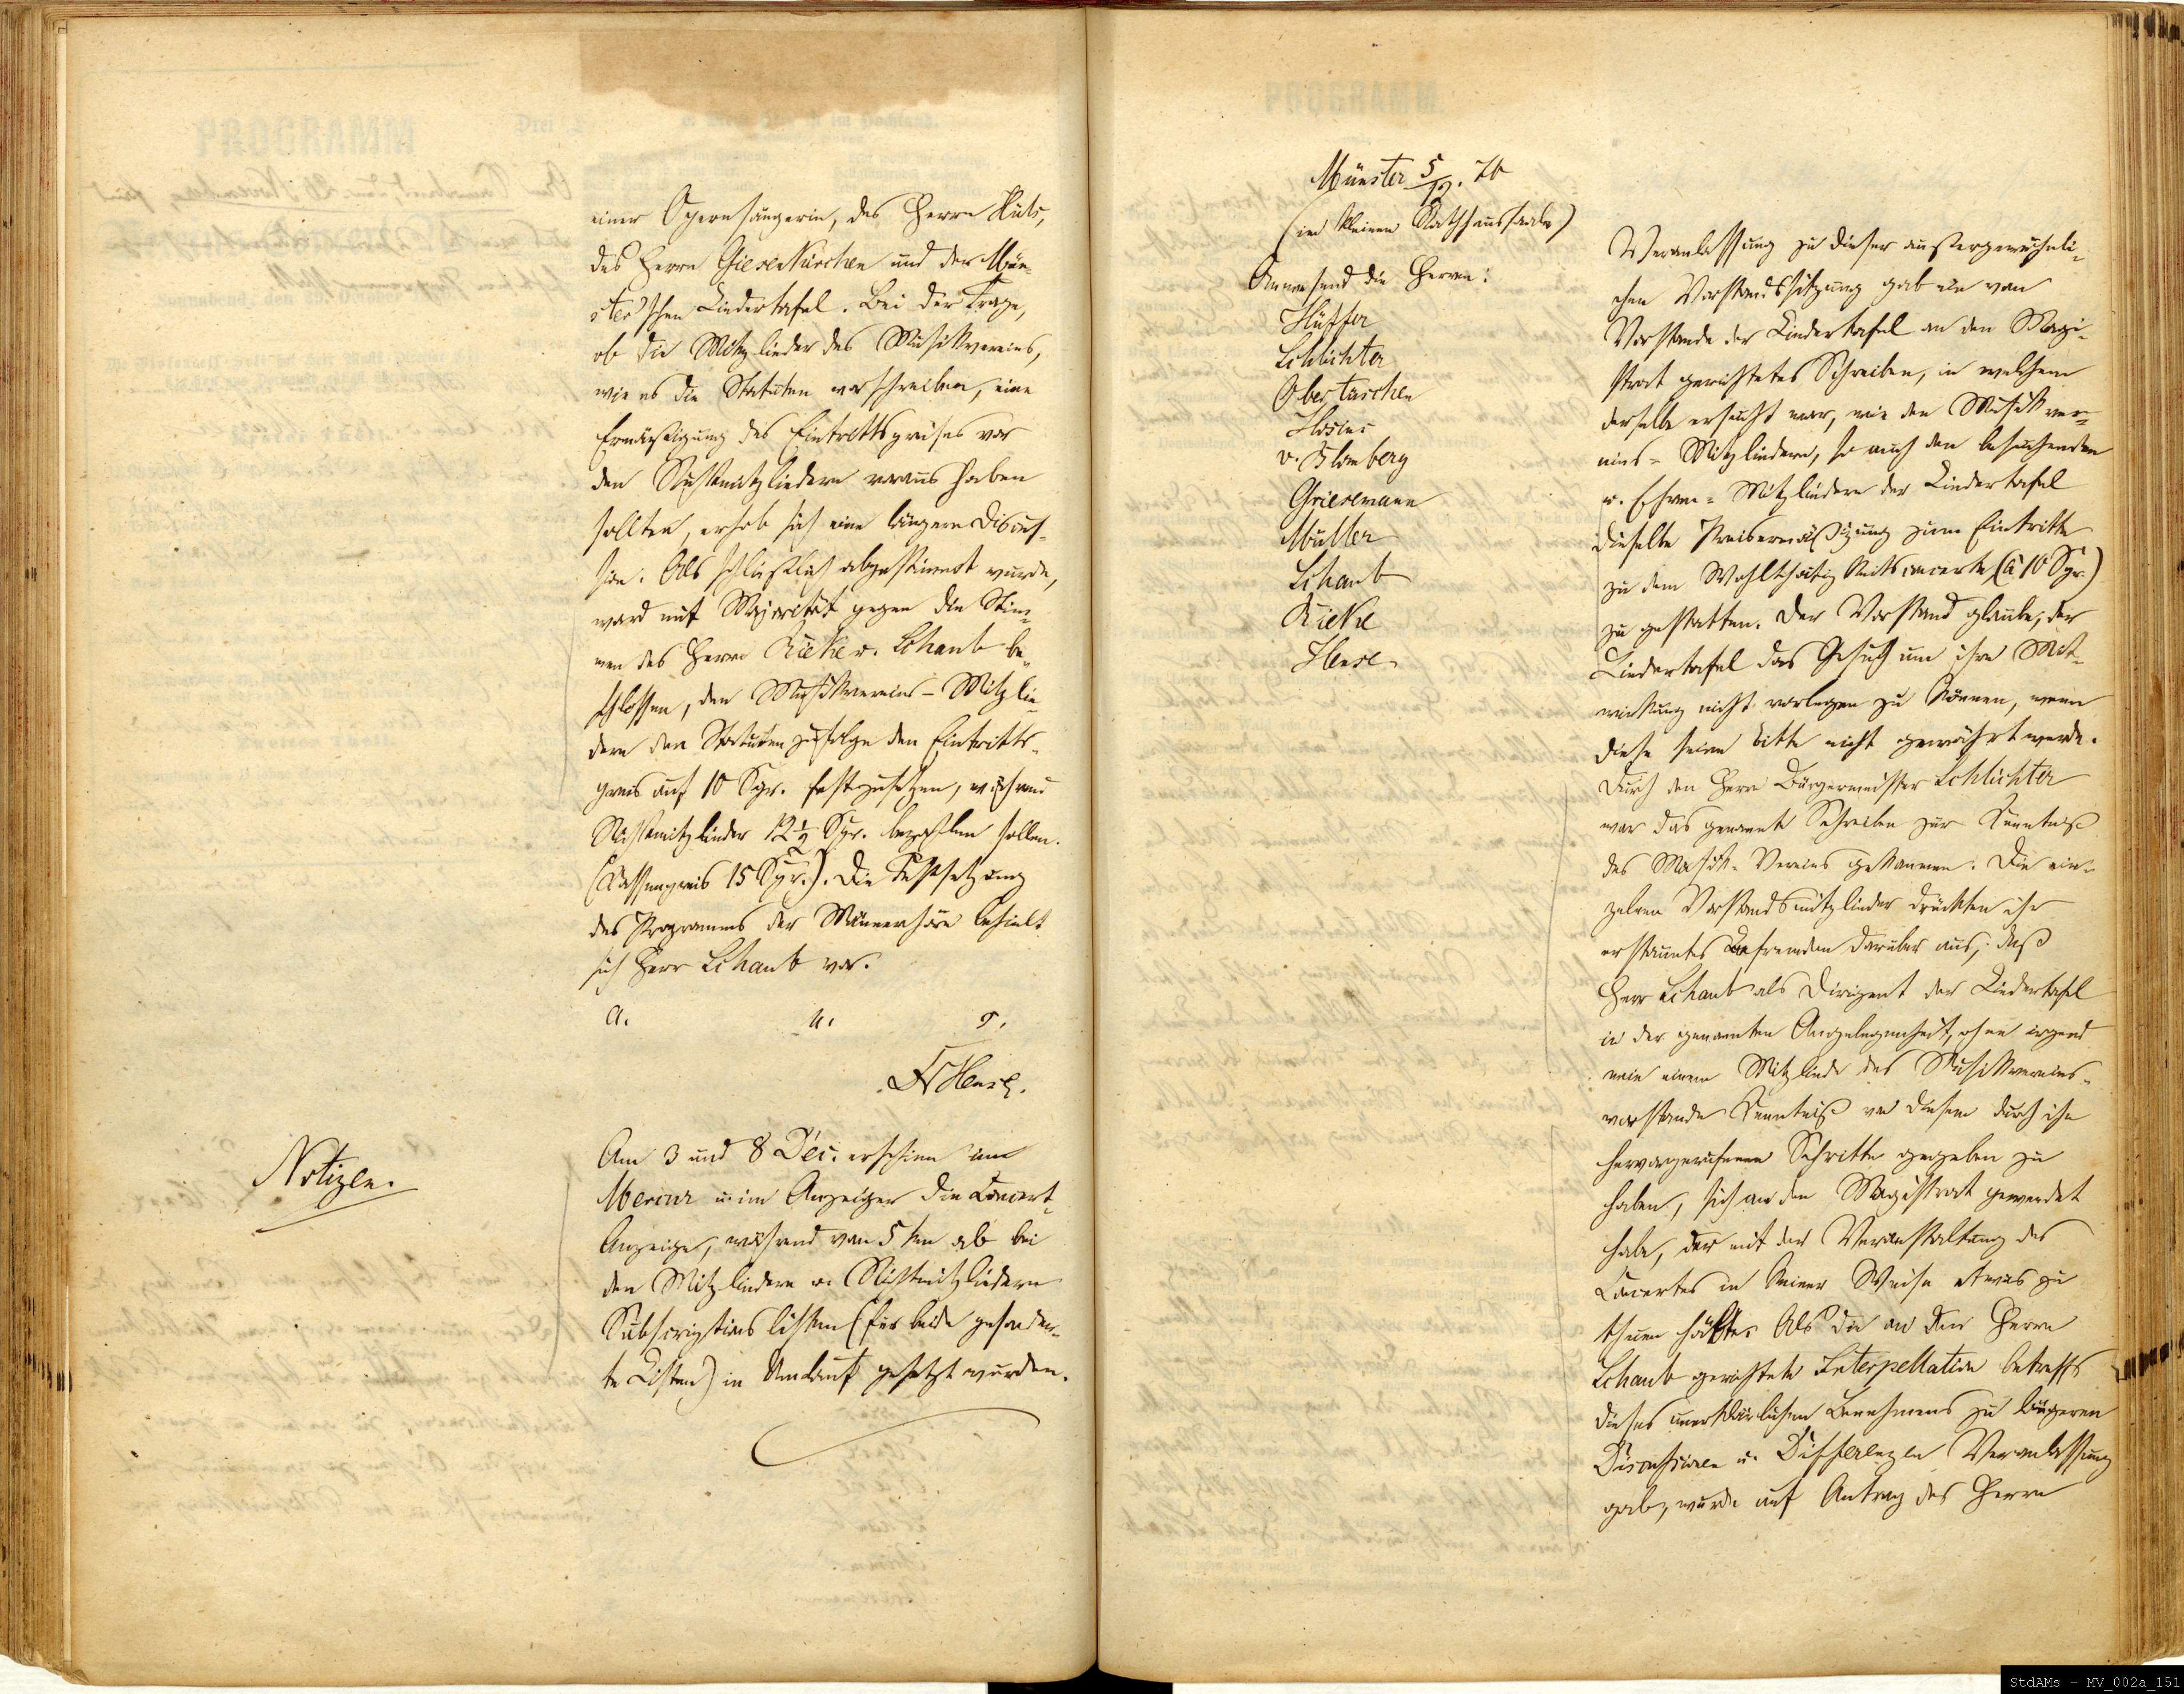 einer Opernsängerin, des HerrnKüls,
des Herrn Giesenkirchen und der Mün-
ster'schen Liedertafel. Bei der Frage,
ob die Mitglieder des Musikvereins,
wie es die Statuten vorschreiben, eine
Ermäßigung des Eintrittspreises vor
den Nichtmitgliedern voraus haben
sollten, erhob sich eine längere Discus-
sion. Als schließlich abgestimmt wurde,
ward mit Majorität gegen die Stim-
men des Herrn Rieke u. Schaub be-
schlossen, den Musikvereins-Mitglie-
dern den Statuten zufolge den Eintritts-
preis auf 10 Sgr. festzusetzen, während
Nichtmitglieder 12½ Sgr. bezahlen sollen.
(Kassenpreis 15 Sgr.). Die Festsetzung
des Programms der Männerchöre behielt
sich Herr Schaub vor.
a. u. s.
Hense.
Notizen.
Am 3 und 8 Dec. erschien im
Mercur u. im Anzeiger die Concert-
Anzeige, während vom 5ten ab bei
den Mitgliedern u. Nichtmitgliedern
Subscriptionslisten (für beide gesonder-
te Listen) in Umlauf gesetzt wurden.
Münster 5/12. 70
(im kleinen Rathhaussaale)
Anwesend die Herren:
Hüffer
Schlichter
Obertüschen
Hosius
v. Blomberg
Griesemann
Müller
Schaub
Rieke
Hense
Veranlassung zu dieser außergewöhnli-
chen Vorstandssitzung gab ein vom
Vorstande der Liedertafel an den Magi-
strat gerichtetes Schreiben, in welchem
derselbe ersucht war, wie den Musikver-
eins-Mitgliedern, so auch den besuchenden
u. Ehren-Mitgliedern der Liedertafel
dieselbe Preisermäßigung zum Eintritte
zu dem Wohlthätigkeitsconcerte (à 10 Sgr.)
zu gestatten. Der Vorstand glaube, der
Liedertafel das Gesuch um ihre Mit-
wirkung nicht vorlegen zu können, wenn
diese seine Bitte nicht gewährt werde.
Durch den Herrn Bürgermeister Schlichter
war das genannte Schreiben zur Kenntniß
des Musik-Vereins gekommen. Die ein-
zelnen Vorstandsmitglieder drückten ihr
erstauntes Befremden darüber aus, daß
Herr Schaub als Dirigent der Liedertafel
in der genannten Angelegenheit, ohne irgend
wie einem Mitgliede des Musikvereins-
vorstandes Kenntniß von diesem durch ihn
hervorgerufenen Schritte gegeben zu
haben, sich an den Magistrat gewendet
habe, der mit der Veranstaltung des
Concertes in keiner Weise etwas zu
thuen hätte. Als die an den Herrn
Schaub gerichtete Interpellation betreffs
dieses unerklärlichen Benehmens zu längeren
Discussionen u. Differenzen Veranlassung
gab, wurde auf Antrag des Herrn
StdAMs - MV_002a_151